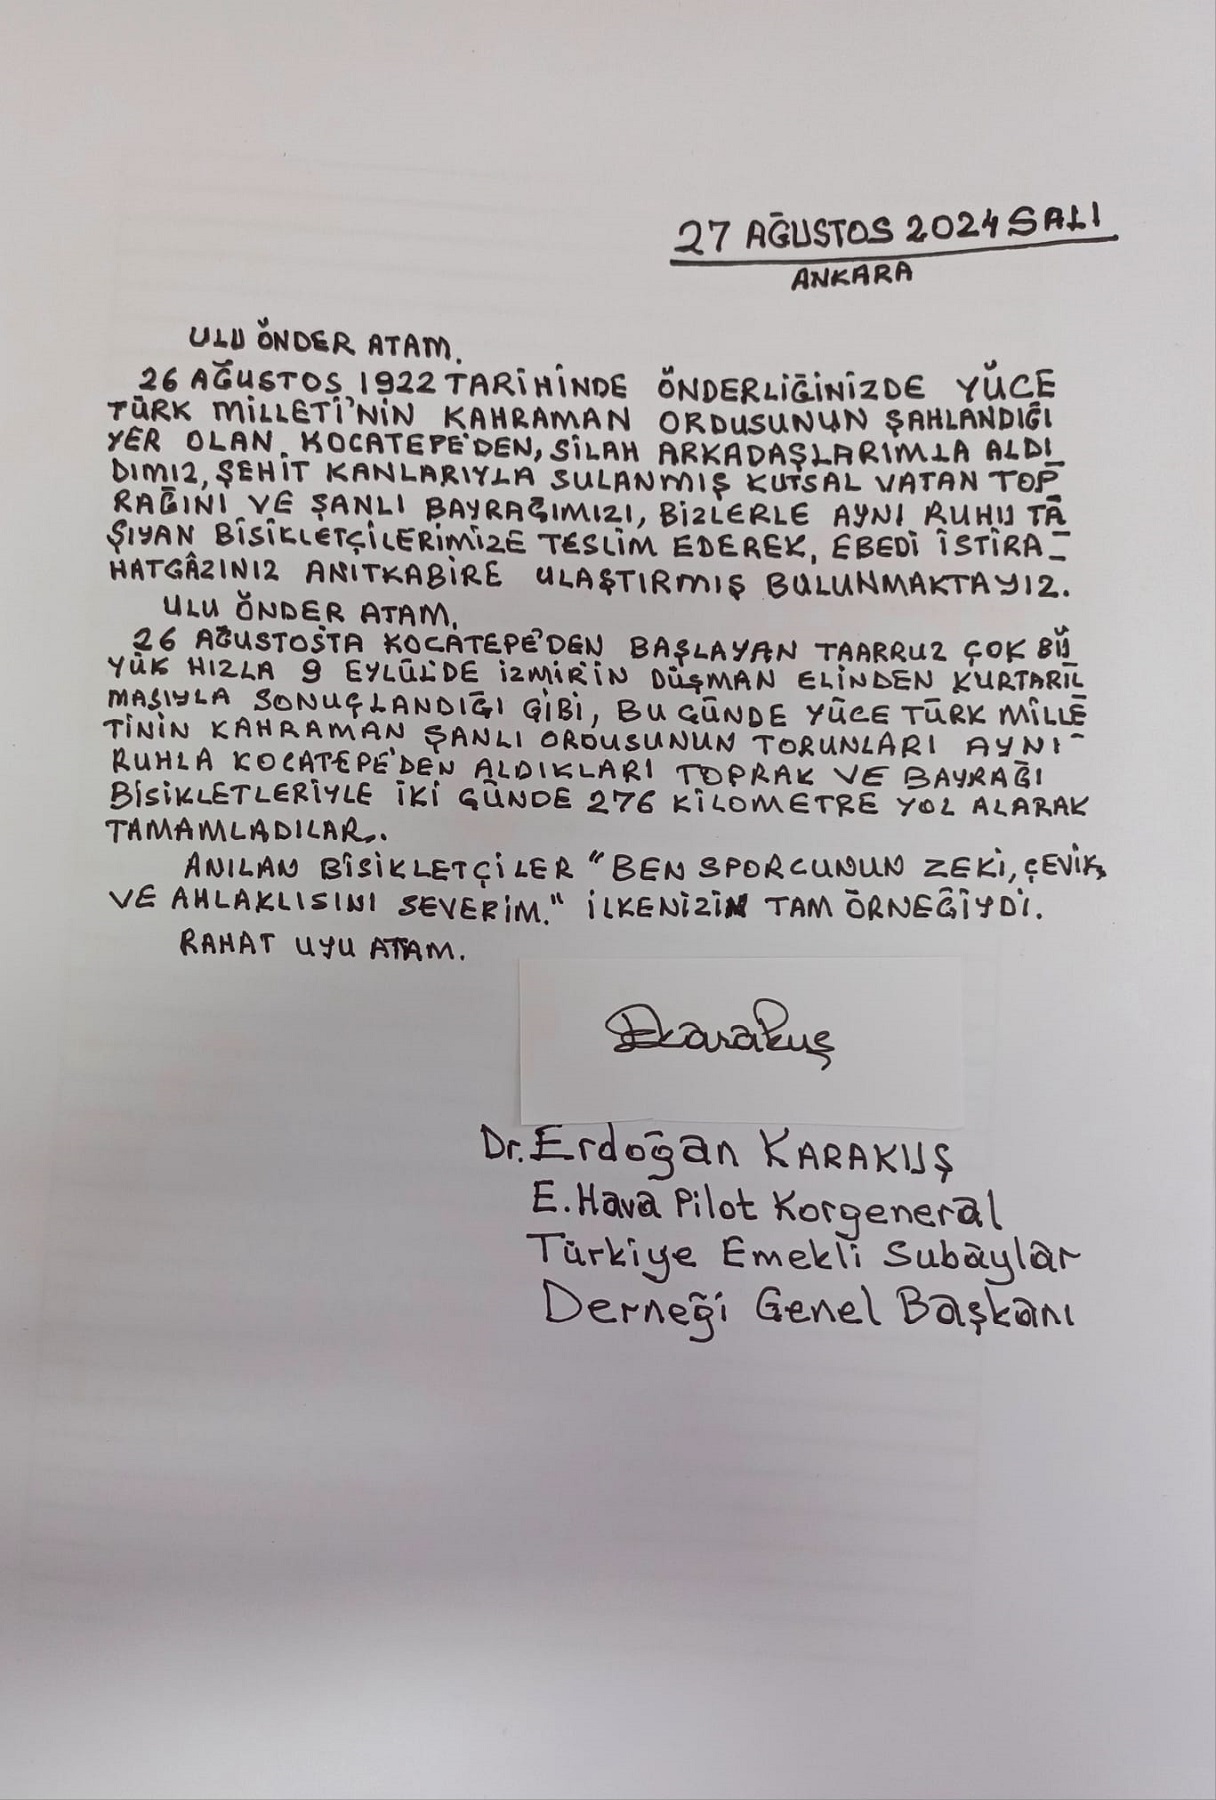 27 AĞUSTOS 2024 SALI
ANKARA
ULU ÖNDER ATAM.
26 AĞUSTOS 1922 TARİHİNDE ÖNDERLİĞİNİZDE YÜCE
TÜRK MİLLETİ'NİN KAHRAMAN ORDUSUNUN ŞAHLANDIĞI
YER OLAN, KOCATEPE'DEN, SİLAH ARKADAŞLARIMLA ALDI_
DIMIZ, ŞEHİT KANLARIYLA SULANMIŞ KUTSAL VATAN TOP_
RAĞINI VE ŞANLI BAYRAĞIMIZI, BİZLERLE AYNI RUHU TA_
ŞIYAN BİSİKLETÇİLERİMİZE TESLİM EDEREK, EBEDİ İSTİRA_
HATGÂZINIZ ANITKABİRE ULAŞTIRMIŞ BULUNMAKTAYIZ.
ULU ÖNDER ATAM,
26 AĞUSTOS'TA KOCATEPE'DEN BAŞLAYAN TAARRUZ ÇOK BÜ_
YÜK HIZLA 9 EYLÜL'DE İZMİR'İN DÜŞMAN ELİNDEN KURTARIL_
MASIYLA SONUÇLANDIĞI GİBİ, BU GÜNDE YÜCE TÜRK MİLLE_
TİNİN KAHRAMAN ŞANLI ORDUSUNUN TORUNLARI AYNI
RUHLA KOCATEPE'DEN ALDIKLARI TOPRAK VE BAYRAĞI
BİSİKLETLERİYLE İKİ GÜNDE 276 KİLOMETRE YOL ALARAK
TAMAMLADILAR..
ANILAN BİSİKLETÇİLER "BEN SPORCUNUN ZEKİ, ÇEVİK,
VE AHLAKLISINI SEVERİM." İLKENİZİN TAM ÖRNEĞİYDİ.
RAHAT UYU ATAM.
EKarakuş
Dr. Erdoğan KARAKUŞ
E. Hava Pilot Korgeneral
Türkiye Emekli Subaylar
Derneği Genel Başkanı